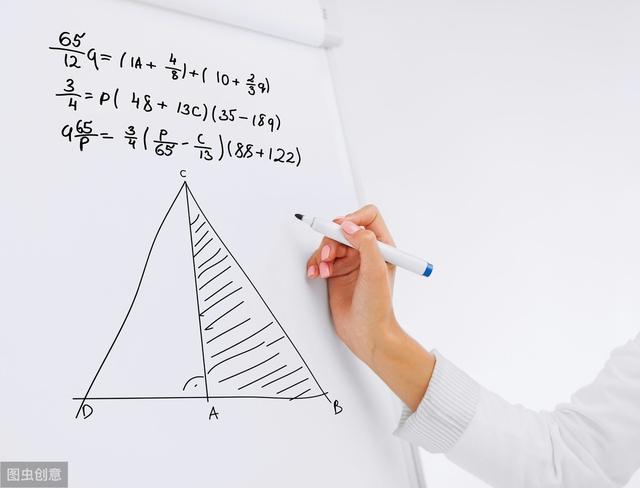 65/12 q = (1A + 4/8) + (10 + 2/3 q)
3/4 = P( 48 + 13C)(35 - 18q)
q 65/P = 3/4 (P/65 - C/13)(88+122)
C
D A B
图虫创意